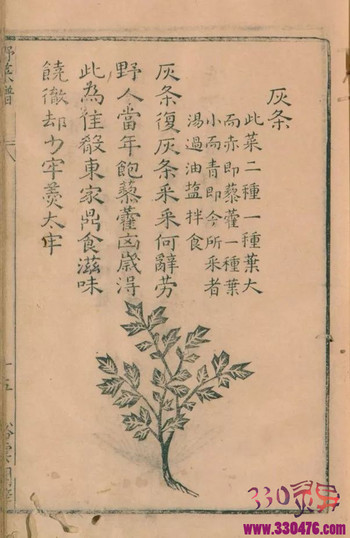 灰条
此菜二種一種葉大
而赤即藜藿一種葉
小而青即今所采者
湯過油盐拌食
灰条復灰条采采何辭劳
野人當年飽藜藿凶歲得
此為佳殽東家鼎食滋味
饒徹却少牢羹太牢
野菜譜
330灵异
www.330476.com